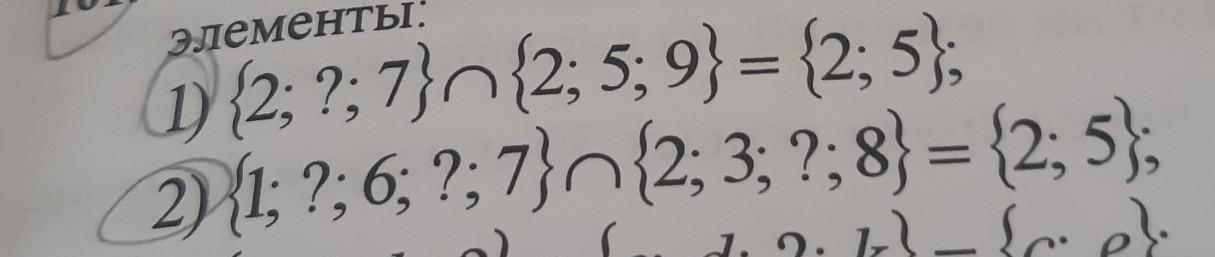 элементы:
1) {2; ?; 7} ∩ {2; 5; 9} = {2; 5};
2) {1; ?; 6; ?; 7} ∩ {2; 3; ?; 8} = {2; 5};